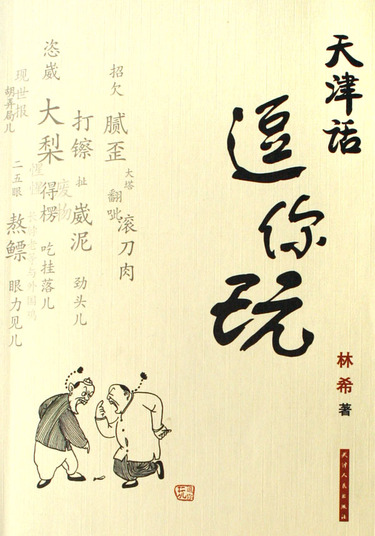 天津话
逗你玩
林希 著
天津人民出版社
招欠
腻歪
大塔
翻呲
滚刀肉
打镲
扯
崴泥
劲头儿
恣崴
大梨
得楞
吃挂落儿
废物
现世报
胡弄局儿
二五眼
熬鳔
眼力见儿